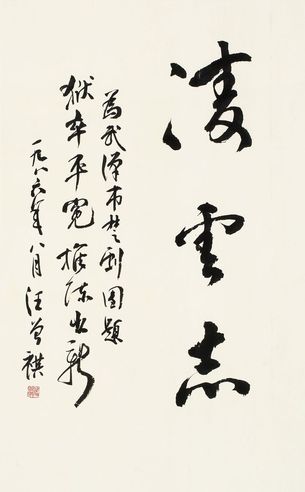 凌雲志
为武漢市楚剧團題
狱卒平冤推陈出新
一九八六年八月汪曾祺